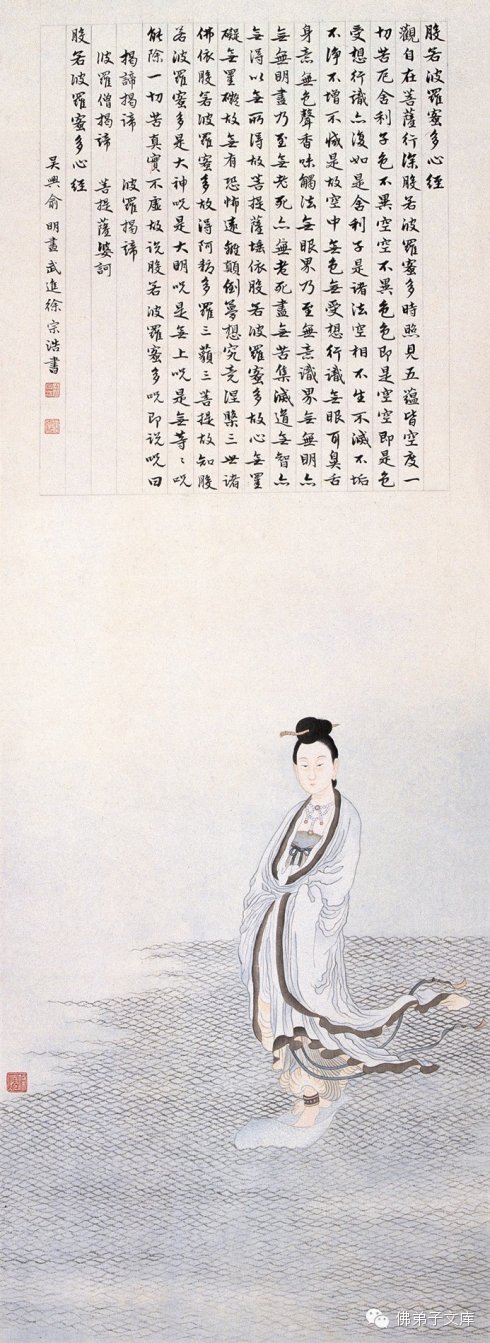 般若波羅蜜多心經
觀自在菩薩行深般若波羅蜜多時照見五蘊皆空度一
切苦厄舍利子色不異空空不異色色即是空空即是色
受想行識亦復如是舍利子是諸法空相不生不滅不垢
不淨不增不減是故空中無色無受想行識無眼耳鼻舌
身意無色聲香味觸法無眼界乃至無意識界無無明亦
無無明盡乃至無老死亦無老死盡無苦集滅道無智亦
無得以無所得故菩提薩埵依般若波羅蜜多故心無罣
礙無罣礙故無有恐怖遠離顛倒夢想究竟涅槃三世諸
佛依般若波羅蜜多故得阿耨多羅三藐三菩提故知般
若波羅蜜多是大神呪是大明呪是無上呪是無等〻呪
能除一切苦真實不虛故說般若波羅蜜多呪即說呪曰
揭諦揭諦 波羅揭諦
波羅僧揭諦 菩提薩婆訶
般若波羅蜜多心經
吳興俞明畫武進徐宗浩書
佛弟子文库